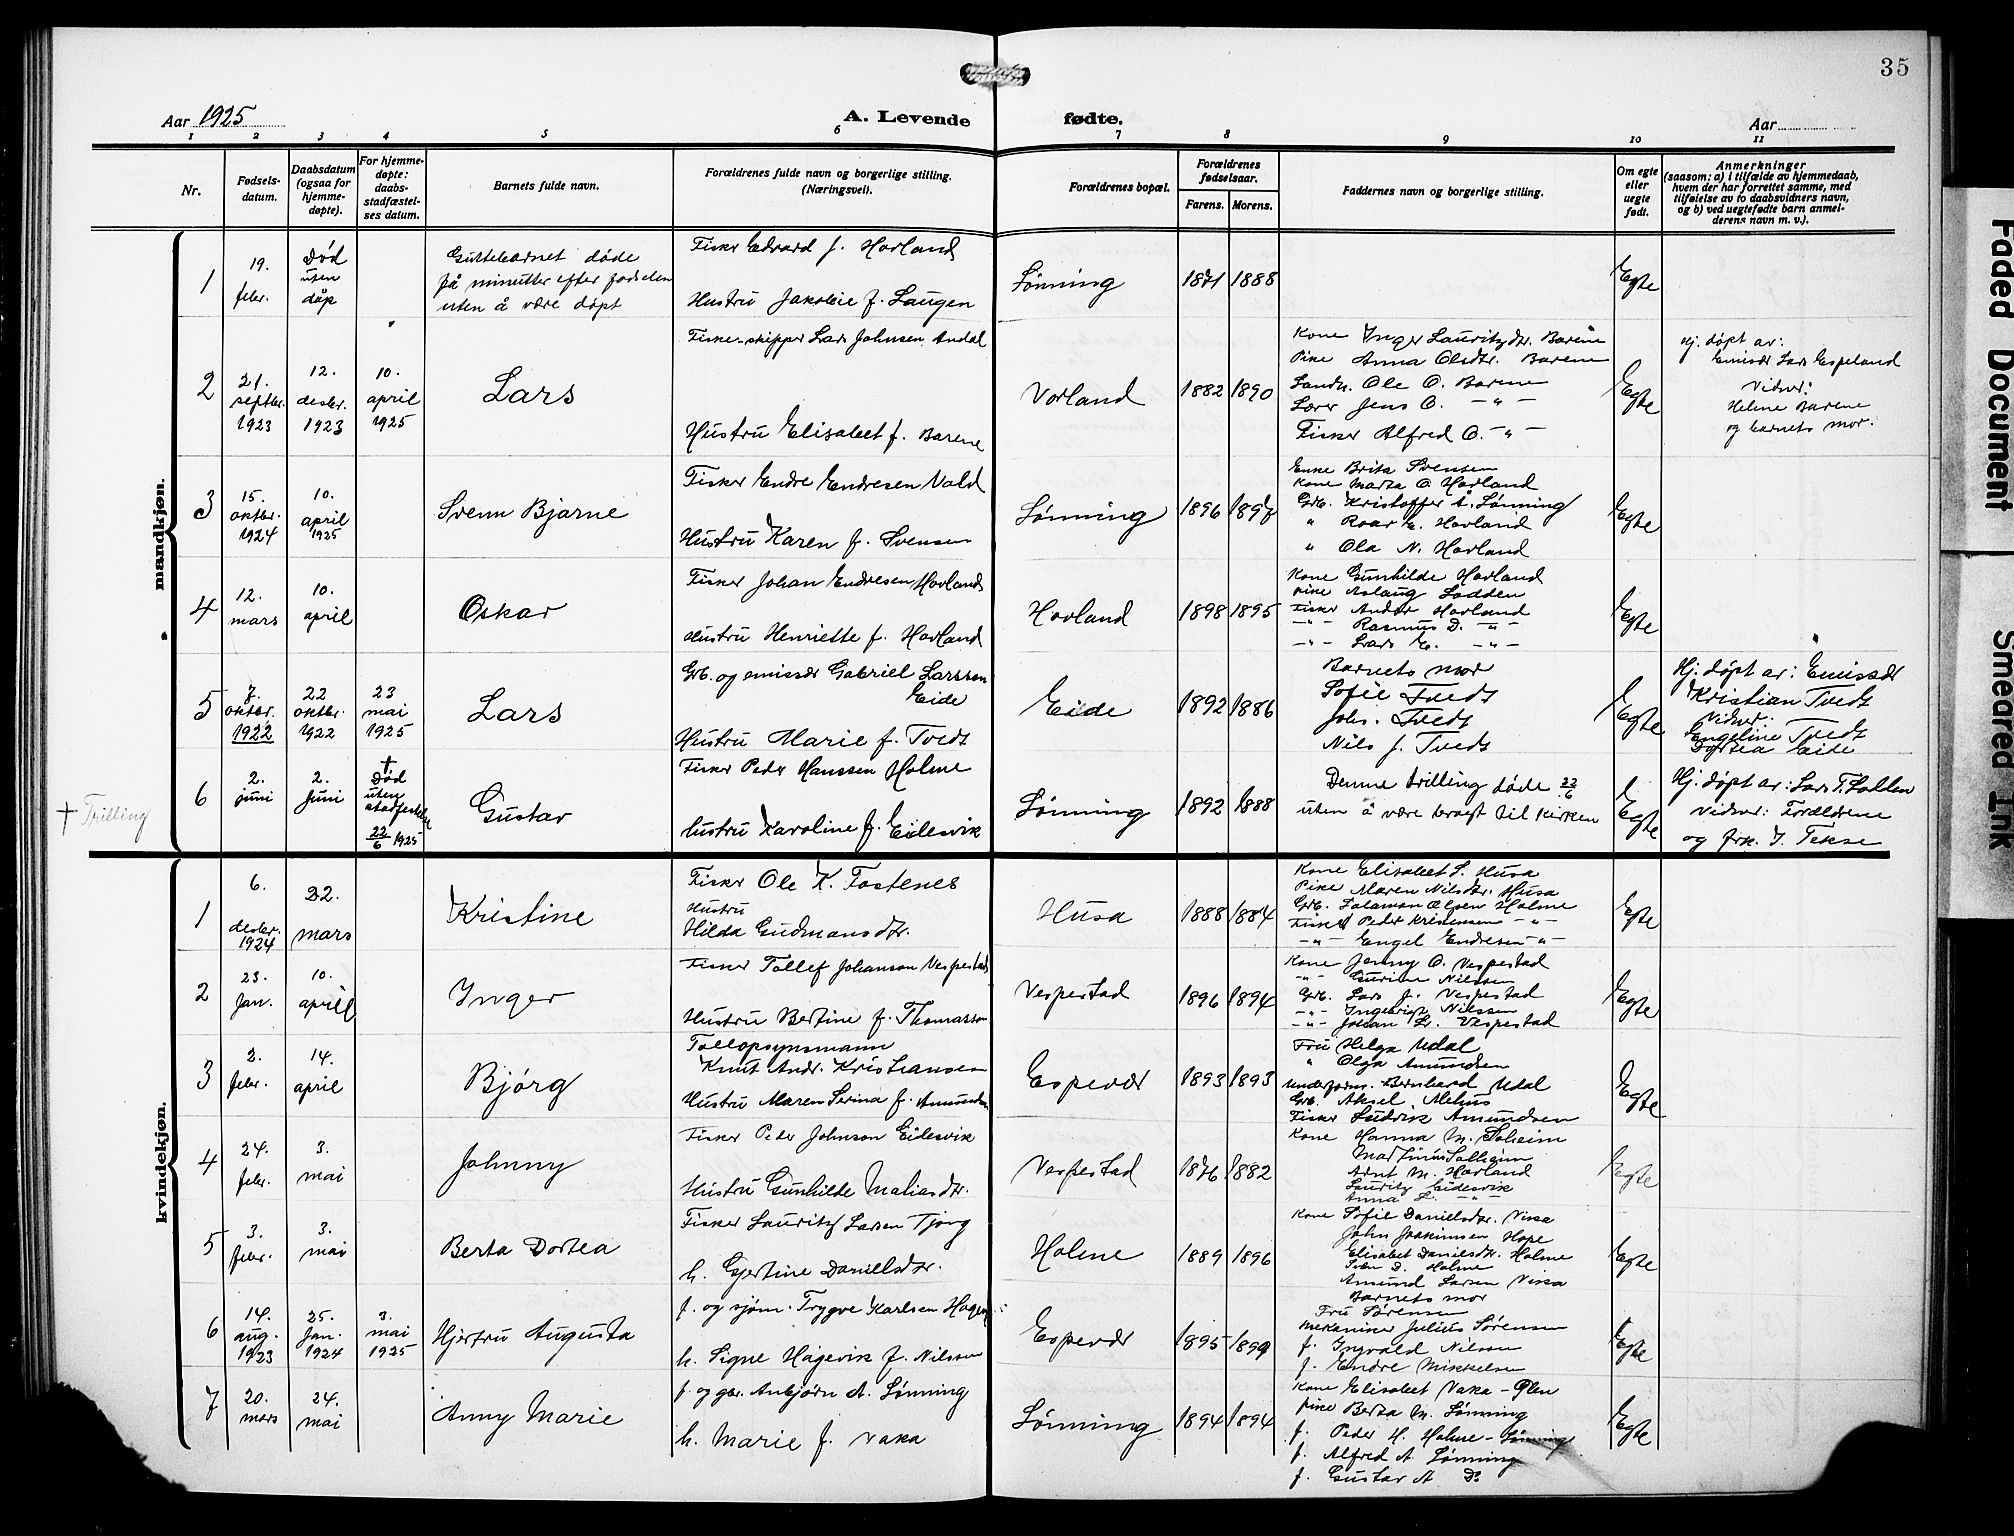 35
Aar 1925
A. Levende fødte.
Aar
1 2 3 4 5 6 7 8 9 10 11
Nr.
Fødselsdatum.
Daabsdatum (ogsaa for hjemmedøpte).
For hjemmedøpte: daabsstadfæstelses datum.
Barnets fulde navn.
Forældrenes fulde navn og borgerlige stilling. (Næringsvei).
Forældrenes bopæl.
Forældrenes fødselsaar.
Farens. Morens.
Faddernes navn og borgerlige stilling.
Om egte eller uegte født.
Anmerkninger
(saasom: a) i tilfælde av hjemmedaab,
hvem der har forrettet samme, med
tilføielse av to daabsvidners navn,
og b) ved uegtefødte barn anmelderens navn m. v.).
mandkjøn.
1
19. febr.
Død uten dåp
Guttebarnet døde
få minutter efter fødselen
uten å være døpt
Fisker Edvard J. Hovland
Hustru Jakobie f. Laugen
Lønning
1871 1888
Egte
2
21. septbr. 1923
12. desbr. 1923
10. april 1925
Lars
Fiske-skipper Lars Johnsen Andal
Hustru Elisabet f. Barene
Vorland
1882 1890
Kone Inger Lauritzdtr. Barene
Pike Anna Olsdtr. Barene
Landh. Ole O. Barene
Lærer Jens O. -"-
Fisker Alfred O. -"-
Egte
Hj. døpt av:
Emisær Lars Espeland
Vidner:
Helene Barene
og barnets mor.
3
15. oktbr. 1924
10. april 1925
Svenn Bjarne
Fisker Endre Endresen Vold
Hustru Karen f. Svensen
Lønning
1896 1897
Enke Brita Svensen
Kone Marta O. Hovland
Grb. Kristoffer A. Lønning
" Roar E. Hovland
" Ola N. Hovland
Egte
4
12. mars
10. april
Oskar
Fisker Johan Endresen Hovland
Hustru Henriette f. Hovland
Hovland
1898 1895
Kone Gunhilde Hovland
Pike Aslaug Lodden
Fisker Andor Hovland
-"- Rasmus D. -"-
-"- Lars E. -"-
Egte
5
7. oktbr. 1922
22 oktbr. 1922
23 mai 1925
Lars
Grb. og emissær Gabriel Larssen
Eide
Hustru Marie f. Tvedt
Eide
1892 1886
Barnets mor
Sofie Tvedt
Johs. Tvedt
Nils J. Tvedt
Egte
Hj. døpt av: Emissær
Kristian Tvedt
Vidner:
Engeline Tvedt
Dortea Eide
† Trilling
6
2. juni
2. juni
† Død uten stadfestelse 22/6 1925
Gustav
Fisker Peder Hanssen Holme
hustru Karoline f. Eidesvik
Lønning
1892 1888
Denne trilling døde 22/6
uten å være bragt til kirken
Egte
Hj. døpt av: Lars T. Hollen
Vidner: Foreldrene
og frk. J. Tekse
kvindekjøn.
1
6. desbr. 1924
22. mars
Kristine
Fisker Ole K. Fostenes
Hustru
Hilda Gudmansdtr.
Husa
1888 1884
Kone Elisabet S. Husa
Pike Maren Nilsdtr. Husa
Grb. Salamon Olsen Holme
Fisker Peder Kristensen -"-
-"- Engel Endresen -"-
Egte
2
23. Jan.
10. april
Inger
Fisker Tollef Johanson Vespestad
Hustru Bertine f. Thomassen
Vespestad
1896 1894
Kone Jenny O. Vespestad
-"- Gurine Nilssen
Grb. Lars J. Vespestad
-"- Ingebrigt Nilssen
-"- Johan L. Vespestad
Egte
3
2. febr.
14. april
Bjørg
Tollopsynsmann
Knut Andr. Kristiansen
Hustru Maren Serina f. Amundsen
Espevær
1893 1893
Fru Helga Udal
" Olga Amundsen
Underform. Bernhard Udal
Grb. Aksel Mehus
Fisker Ludvik Amundsen
Egte
4
24. febr.
3. mai
Johnny
Fisker Peder Johnson Eidesvik
Hustru Gunhilde Matiasdtr.
Vespestad
1876 1882
Kone Hanna M. Soheim
Martinus Solheim
Arnt M. Hovland
Lauritz Eidesvik
Anna L. -"-
Egte
5
3. febr.
3. mai
Berta Dortea
Fisker Lauritz Larsen Tjong
h. Gjertine Danielsdtr.
Holme
1889 1896
Kone Sofie Danielsdtr. Vika
John Joakimsen Hope
Elisabet Danielsdtr. Holme
Peder D. Holme
Amund Larsen Vika
Egte
6
14. aug. 1923
25. Jan. 1924
3. mai 1925
Hjertru Augusta
f. og sjøm. Trygve Karlsen Hagevik
h. Signe Hagevik f. Nilsson
Espevær
1895 1899
Barnets mor
Fru Sørensen
Mekaniker Julius Sørensen
f. Ingvald Nilsson
f. Endre Mikkelsen
Egte
7
20. mars
24. mai
Anny Marie
f. og gbr. Anbjørn A. Lønning
h. Marie f. Vaka
Lønning
1894 1894
Kone Elisabet Vaka-Olen
Pike Berta M. Lønning
f. Peder H. Holme-Lønning
f. Alfred A Lønning
f. Gustav A Do
Egte
Faded Document
Smeared Ink